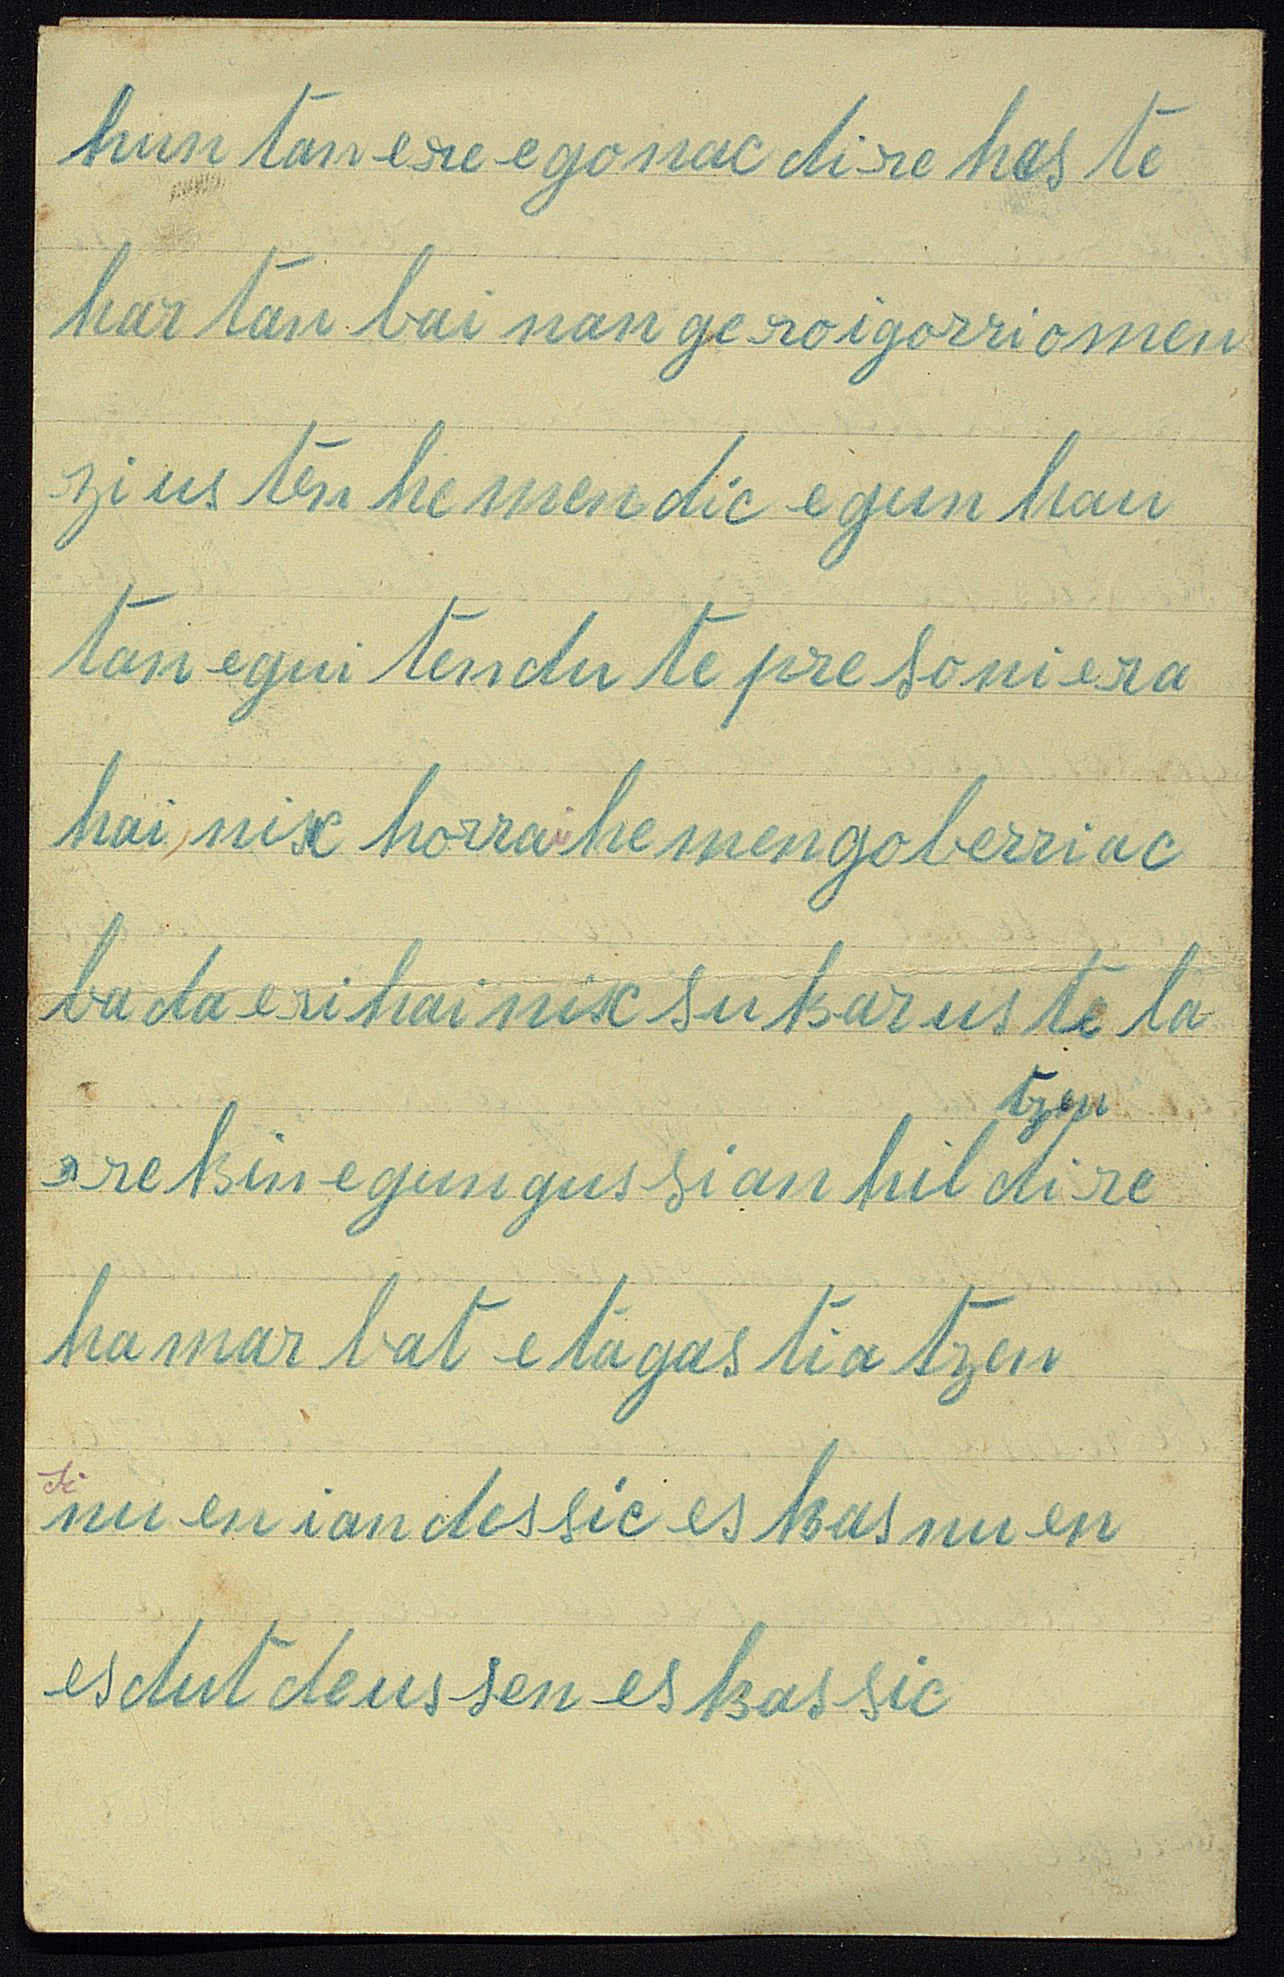 hun tan ere egonac dire has te
har tan bai nan geroigorriomen
zi us ten he men dic egun hau
tan egui ten du te pre soni era
hai nix horrai he mengoberriac
ba da eri hai nix su kar us te la
tzen
rre kin egun gus sian hil di re
ha mar bat e ta gas tia tzen
si
nu en ian des sic es kas nu en
es dut deus sen es kas sic